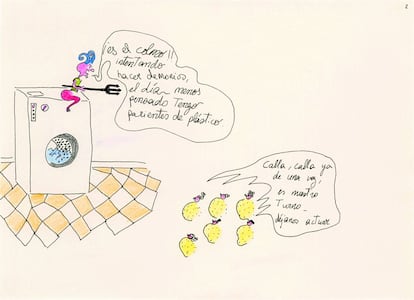 2
¡es el colmo!!
intentando
hacer demonios,
el día menos
pensado Tengo
parientes de plástico
Calla, calla ya
de una vez,
es nuestro
Turno...
déjanos actuar